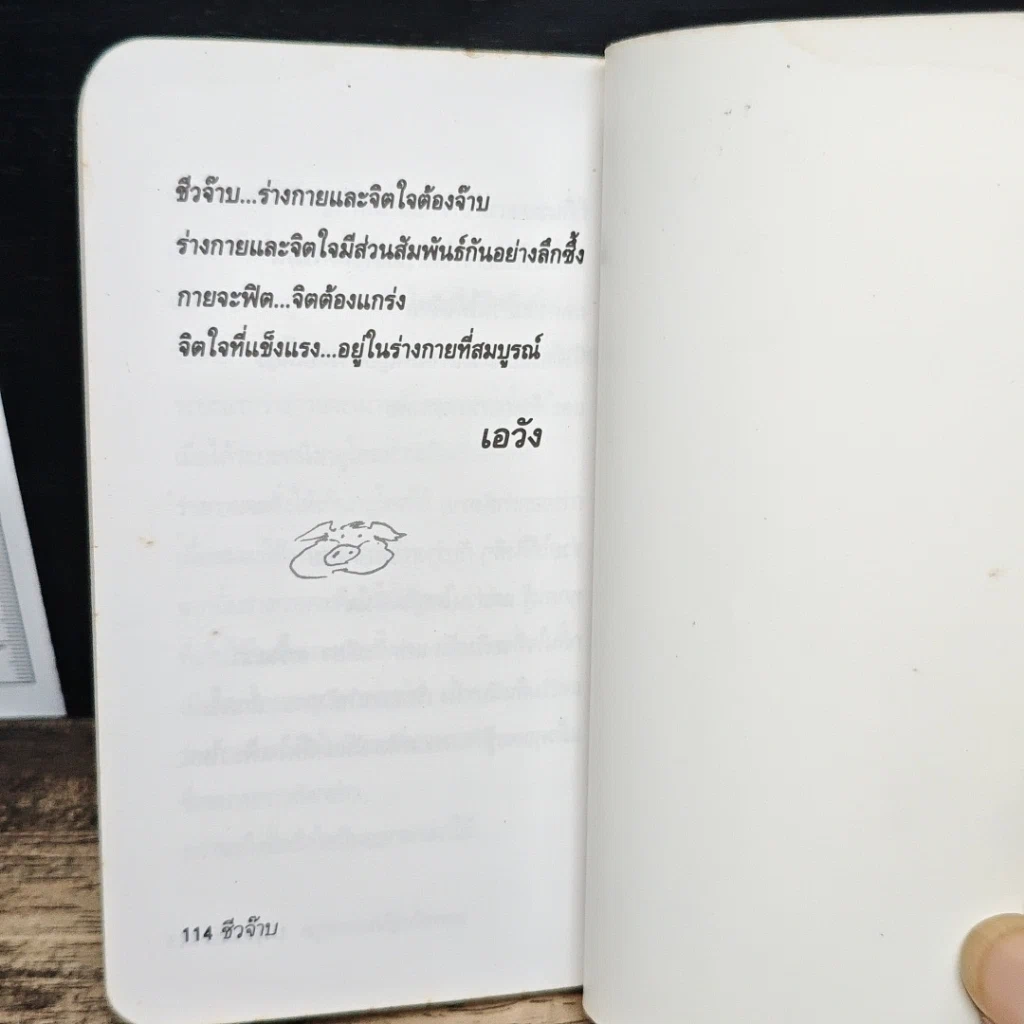 ชีวจ๊าบ...ร่างกายและจิตใจต้องจ๊าบ
ร่างกายและจิตใจมีส่วนสัมพันธ์กันอย่างลึกซึ้ง
กายจะฟิต...จิตต้องแกร่ง
จิตใจที่แข็งแรง...อยู่ในร่างกายที่สมบูรณ์
เอวัง
114 ชีวจ๊าบ